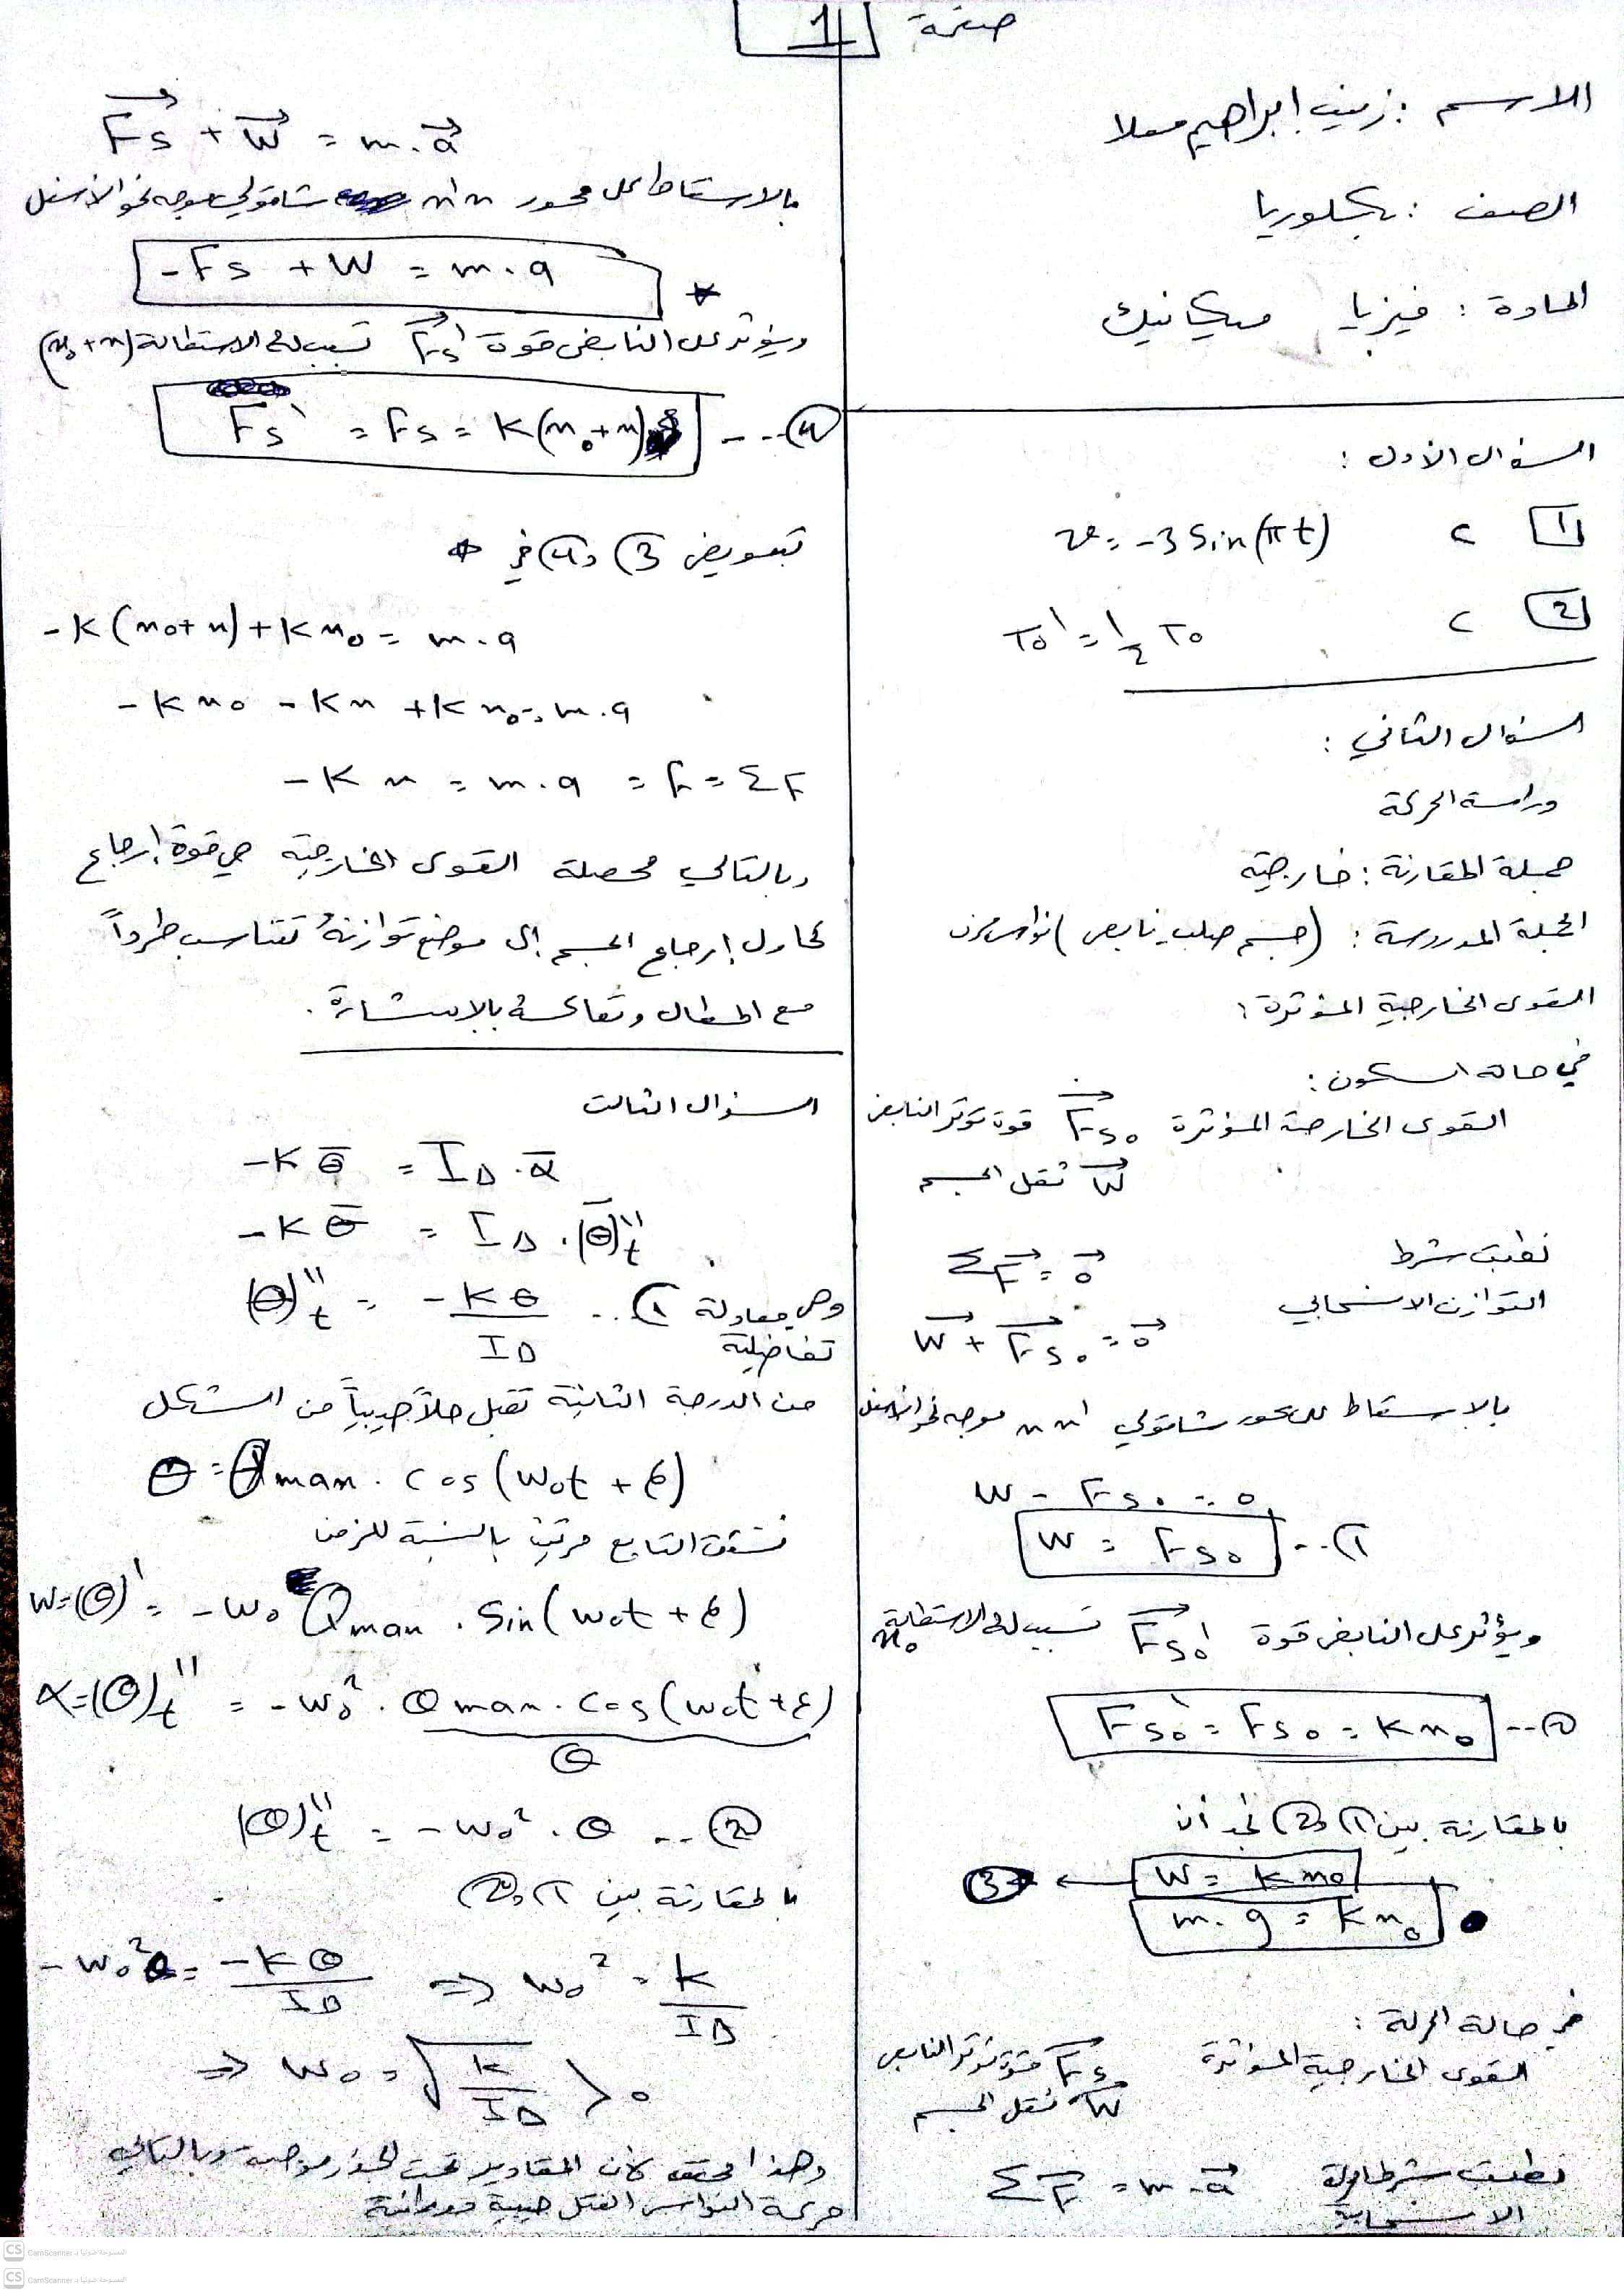 صفحة 1
الاسم : زينب ابراهيم معلا
الصف : بكلوريا
المادة : فيزيا ميكانيك
السؤال الأول :
1 c v = -3 sin(πt)
2 c T₀' = 1/2 T₀
السؤال الثاني :
دراسة الحركة
جملة المقارنة : خارجية
الجملة المدروسة : (جسم صلب - نابض) نواس مرن
القوى الخارجية المؤثرة :
في حالة السكون :
القوى الخارجية المؤثرة Fs₀ قوة توتر النابض
W ثقل الجسم
نطبق شرط التوازن الانسحابي
ΣF = 0
W + Fs₀ = 0
بالاسقاط على محور شاقولي x'x موجه نحو الأسفل
W - Fs₀ = 0
W = Fs₀ ... (1
ويؤثر على النابض قوة Fs₀' تسبب له الاستطالة x₀
Fs₀' = Fs₀ = k x₀ ... (2
بالمقارنة بين 1) و 2) نجد أن
W = k x₀ → (3
m.g = k x₀
في حالة الحركة :
القوى الخارجية المؤثرة Fs قوة توتر النابض
W ثقل الجسم
ΣF = m.a
Fs + W = m.a
بالاسقاط على محور x'x شاقولي موجه نحو الأسفل
-Fs + W = m.a *
ويؤثر على النابض قوة Fs' تسبب له الاستطالة (x₀+x)
Fs' = Fs = k(x₀+x) ... (4
تعويض 3) و 4) في *
-k(x₀+x) + k x₀ = m.a
-k x₀ - k x + k x₀ = m.a
-k x = m.a = F = ΣF
وبالتالي محصلة القوى الخارجية هي قوة إرجاع
تحاول إرجاع الجسم إلى موضع توازنه تتناسب طرداً
مع المطال وتعاكسه بالاشارة.
السؤال الثالث
-k θ = I_Δ . α
-k θ = I_Δ . (θ)''t
(θ)''t = -kθ / I_Δ ... (1 وهي معادلة تفاضلية
من الدرجة الثانية تقبل حلاً جيبياً من الشكل
θ = θmax . cos(ω₀t + φ)
نشتق التابع مرتين بالنسبة للزمن
ω = (θ)' = -ω₀ θmax . sin(ω₀t + φ)
α = (θ)''t = -ω₀² . θmax . cos(ω₀t + φ)
θ
(θ)''t = -ω₀² . θ ... (2
بالمقارنة بين 1) و 2)
-ω₀²θ = -kθ / I_Δ ⇒ ω₀² = k / I_Δ
⇒ ω₀ = √(k / I_Δ) > 0
وهذا محقق لأن المقادير تحت الجذر موجبة وبالتالي
حركة النواس الفتل جيبية دورانية
CS الممسوحة ضوئيا بـ CamScanner
CS الممسوحة ضوئيا بـ CamScanner